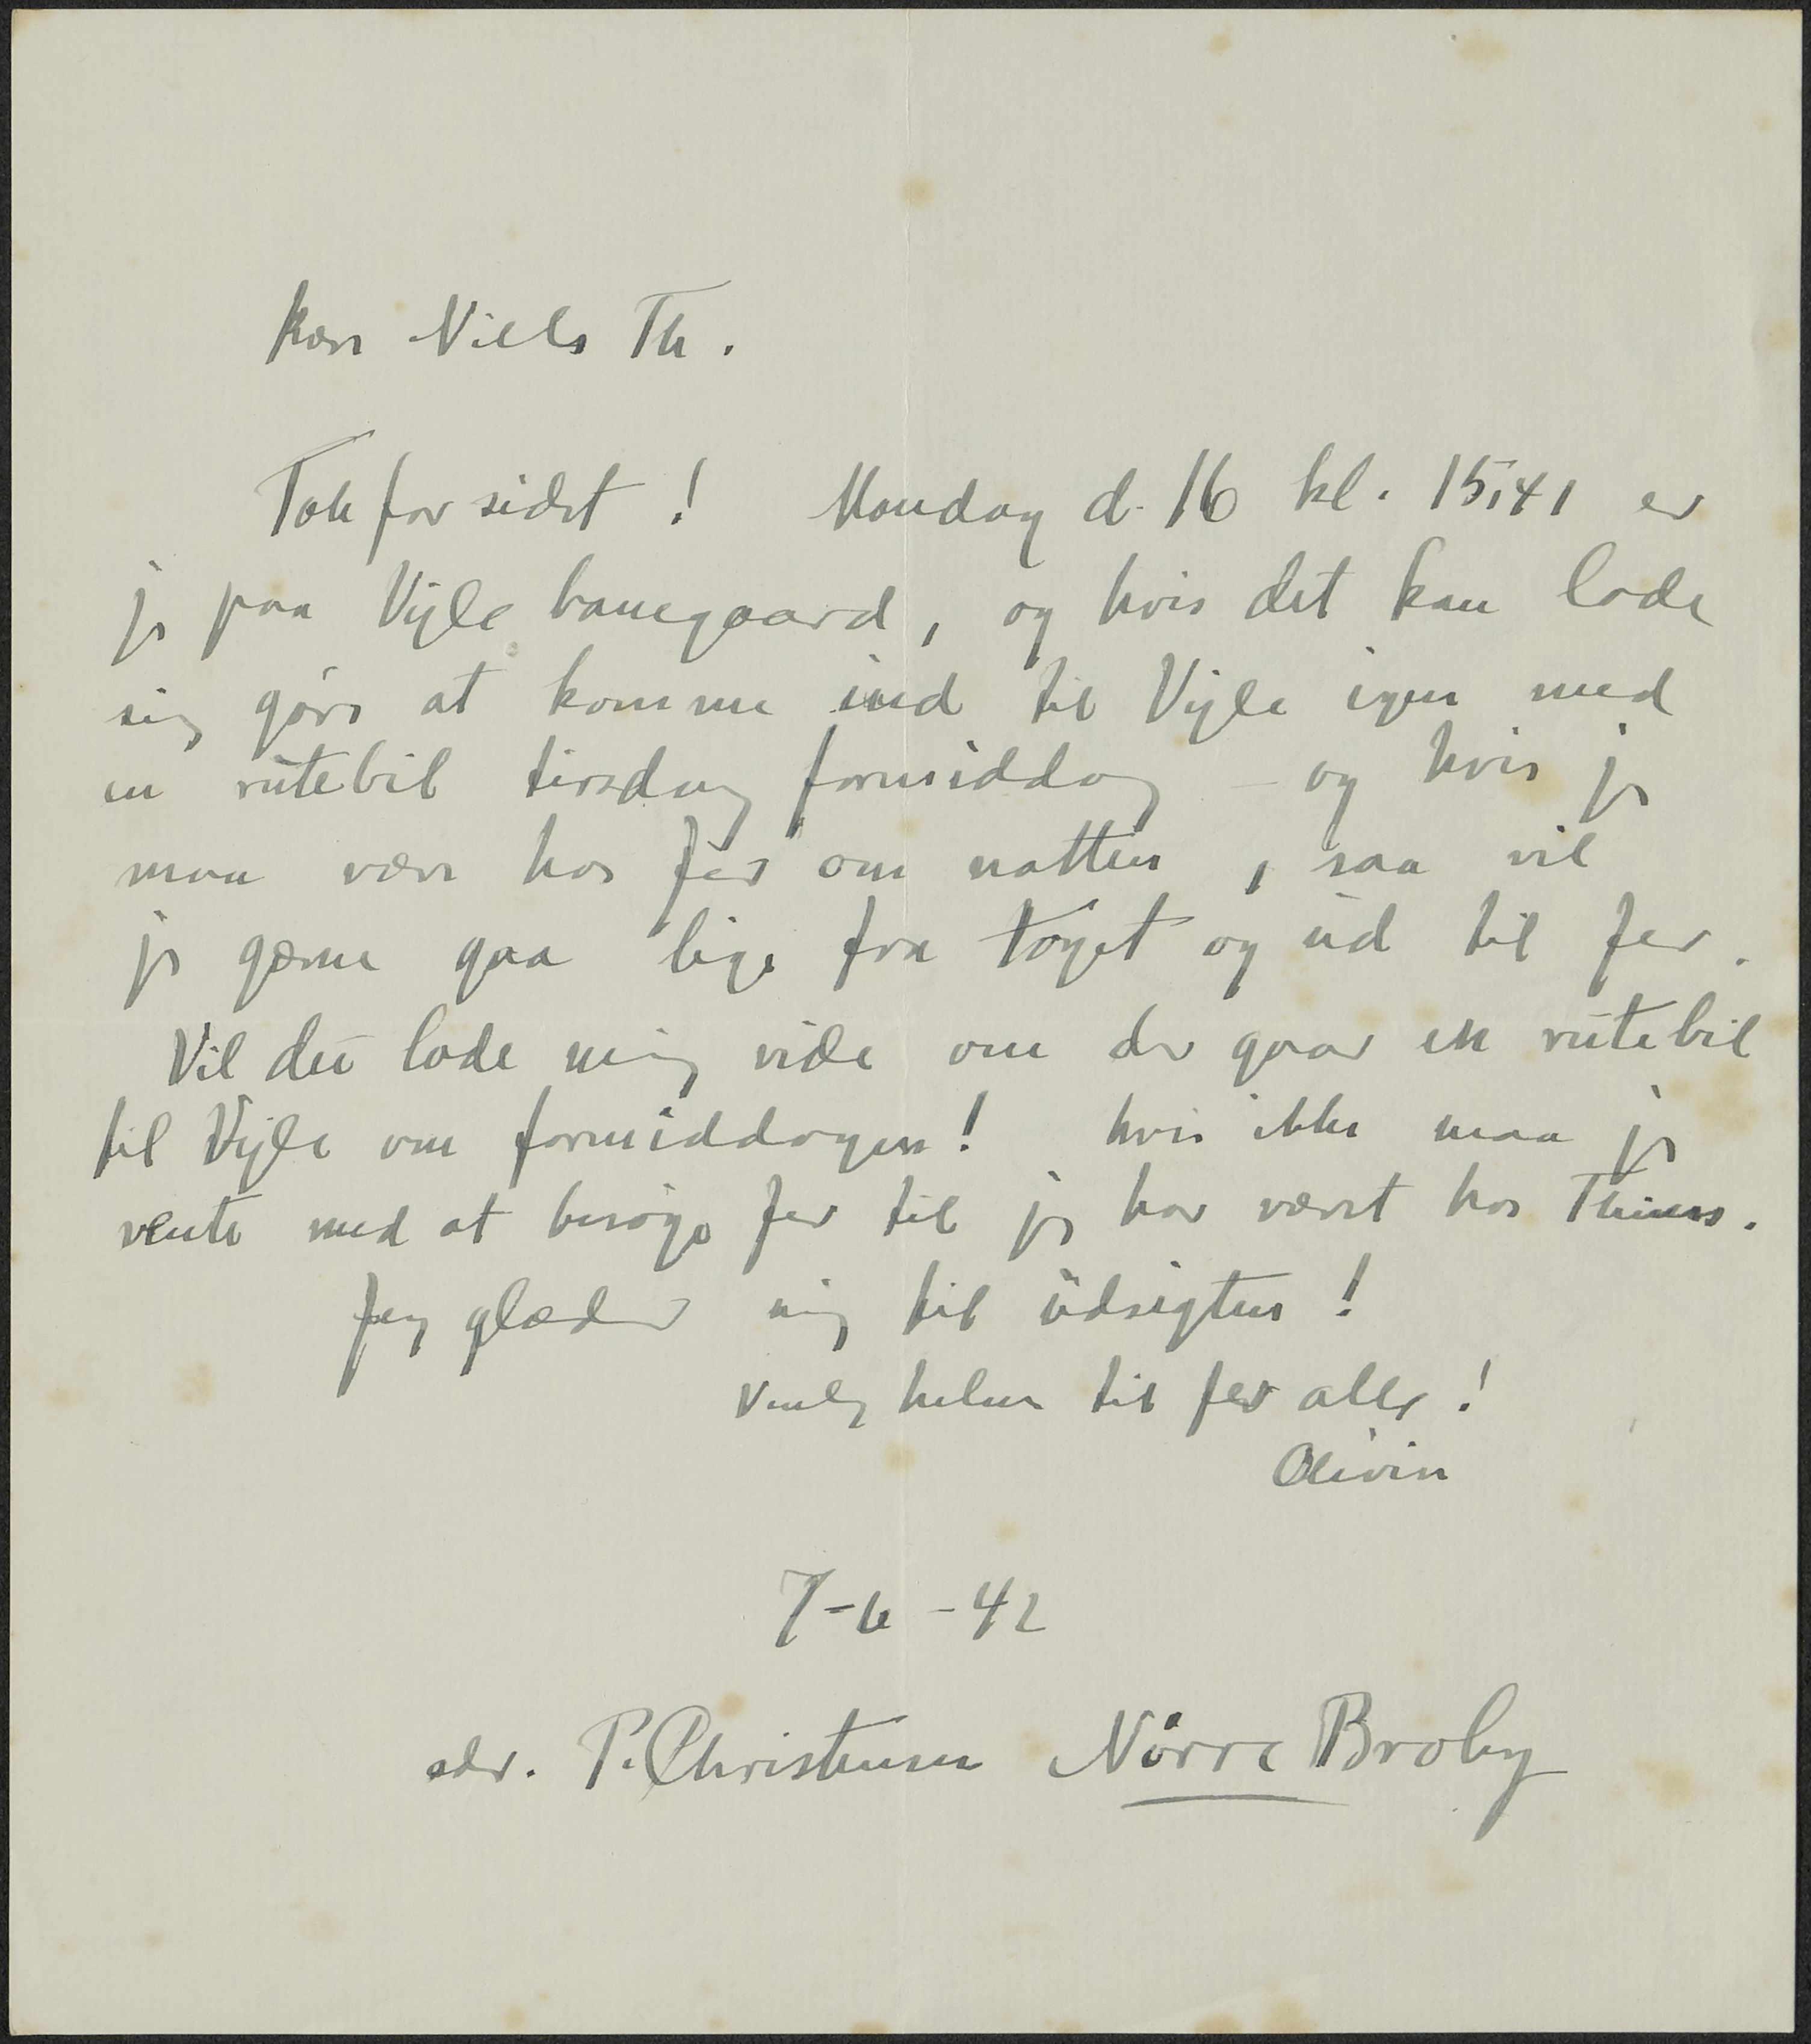 kære Niels Th.
Tak for sidst ! Mandag d. 16 kl. 15,41 er
jeg paa Vejle banegaard, og hvis det kan lade
sig gøre at komme ind til Vejle igen med
en rutebil tirsdag formiddag - og hvis jeg
maa være hos jer om natten , saa vil
jeg gærne gaa lige fra toget og ud til jer .
Vil du lade mig vide om der gaar en rutebil
til Vejle om formiddagen ! hvis ikke maa jeg
vente med at besøge jer til jeg har været hos
Jeg glæder mig til udsigten !
Venlig hilsen til jer alle !
7-6-42
adr. P. Christensen Nørre Broby